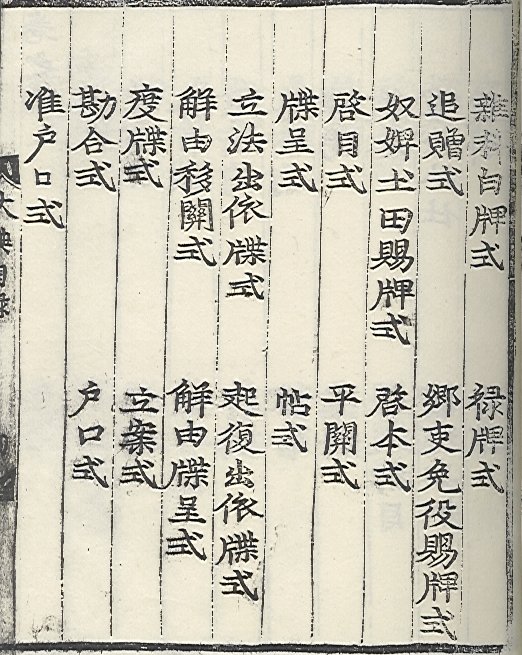 雜科白牌式 祿牌式
追贈式 鄉吏免役賜牌式
奴婢土田賜牌式 啓本式
啓目式 平關式
牒呈式 帖式
立法出依牒式 起復出依牒式
解由移關式 解由牒呈式
度牒式 立案式
勘合式 戶口式
准戶口式
大典目錄